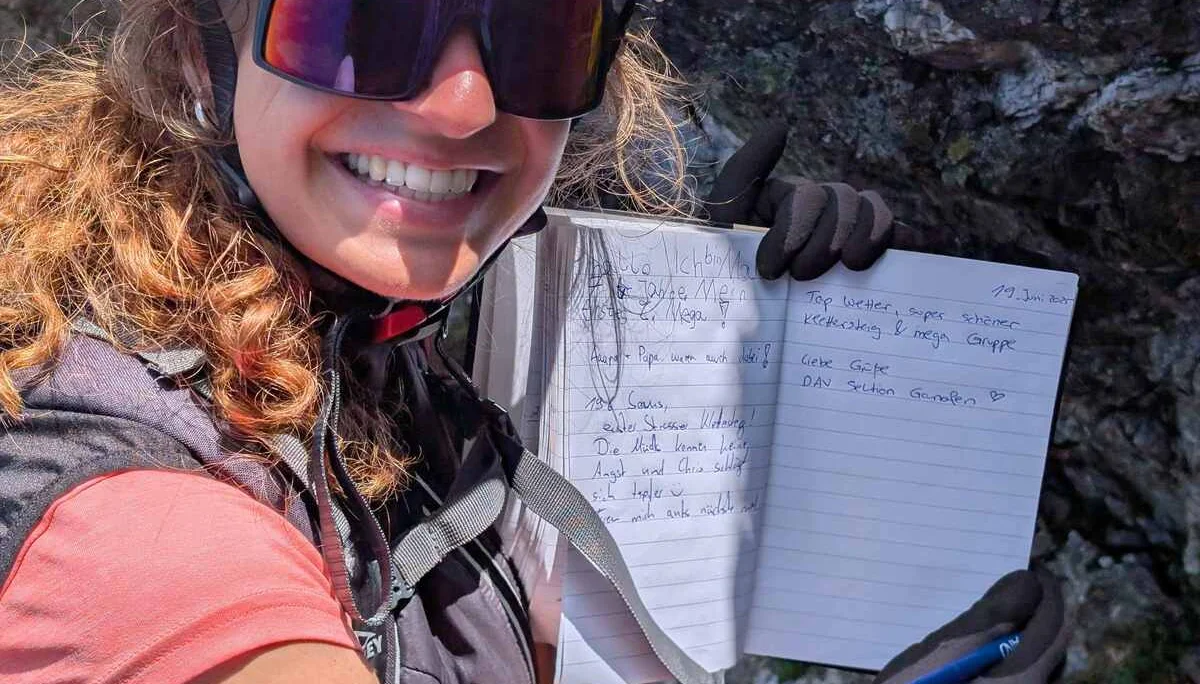 Hallo Ich bin
Jahre Mein
Mega!
+ Papa waren auch dabei!
19.6 Servus,
echter Klettersteig!
Die Mädls kennen keine
Angst und Chris schlägt
sich tapfer
mich aufs nächste mal
19. Juni 2025
Top Wetter, super schöner
Klettersteig & mega Gruppe
Liebe Grüße
DAV Sektion Ganofen ♡